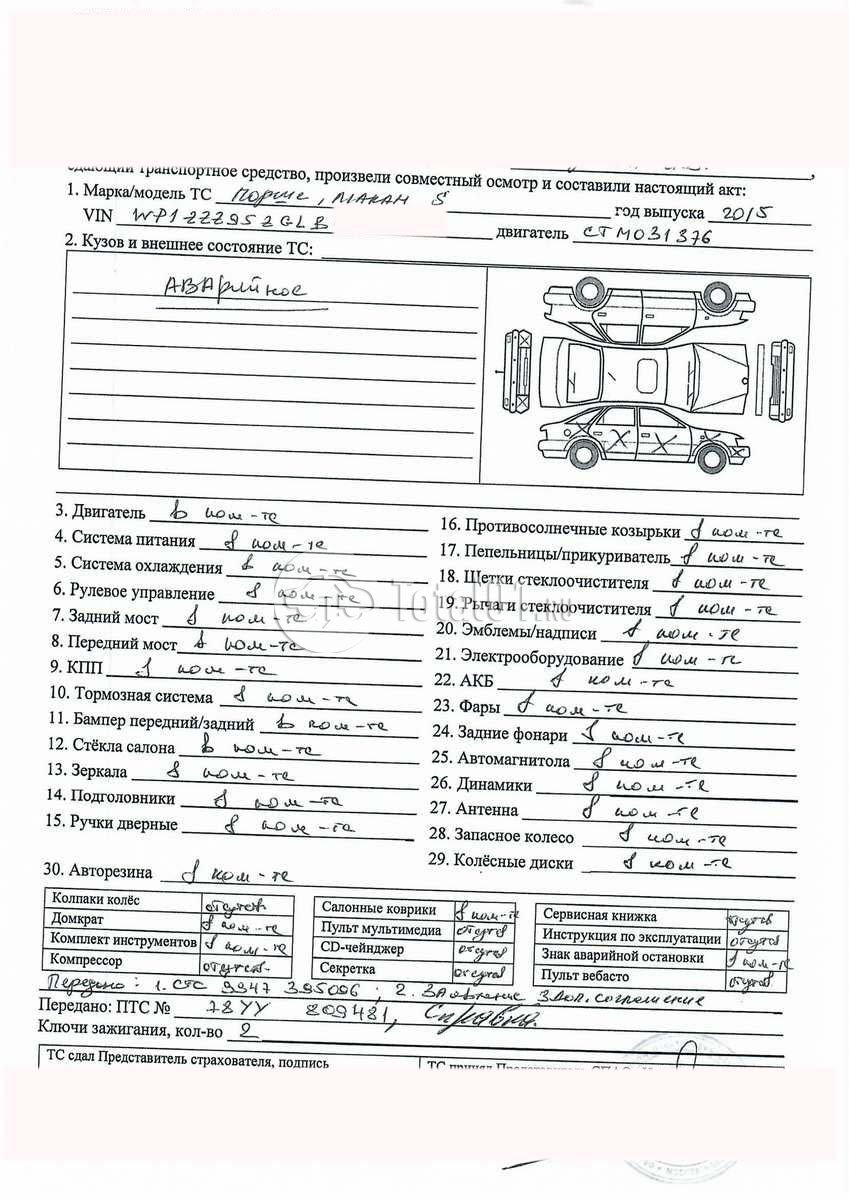 едающий транспортное средство, произвели совместный осмотр и составили настоящий акт:
1. Марка/модель ТС Порше, МАКАН S
год выпуска 2015
VIN WP1ZZZ95ZGLB
двигатель СТМ031376
2. Кузов и внешнее состояние ТС:
АВАРийное
3. Двигатель в ком-те
4. Система питания в ком-те
5. Система охлаждения в ком-те
6. Рулевое управление в ком-те
7. Задний мост в ком-те
8. Передний мост в ком-те
9. КПП в ком-те
10. Тормозная система в ком-те
11. Бампер передний/задний в ком-те
12. Стёкла салона в ком-те
13. Зеркала в ком-те
14. Подголовники в ком-те
15. Ручки дверные в ком-те
16. Противосолнечные козырьки в ком-те
17. Пепельницы/прикуриватель в ком-те
18. Щетки стеклоочистителя в ком-те
19. Рычаги стеклоочистителя в ком-те
20. Эмблемы/надписи в ком-те
21. Электрооборудование в ком-те
22. АКБ в ком-те
23. Фары в ком-те
24. Задние фонари в ком-те
25. Автомагнитола в ком-те
26. Динамики в ком-те
27. Антенна в ком-те
28. Запасное колесо в ком-те
29. Колёсные диски в ком-те
Total01.RU
30. Авторезина в ком-те
Колпаки колёс отсутств.
Домкрат в ком-те
Комплект инструментов в ком-те
Компрессор отсутств.
Салонные коврики в ком-те
Пульт мультимедиа отсутв
CD-чейнджер отсутв
Секретка отсутв
Сервисная книжка отсутв
Инструкция по эксплуатации отсутв
Знак аварийной остановки в ком-те
Пульт вебасто отсутв
Передано: 1. СТС 9947 395096; 2. ЗАявление 3. Доп. соглашение
Передано: ПТС № 78УУ 809481, Справка.
Ключи зажигания, кол-во 2
ТС сдал Представитель страхователя, подпись